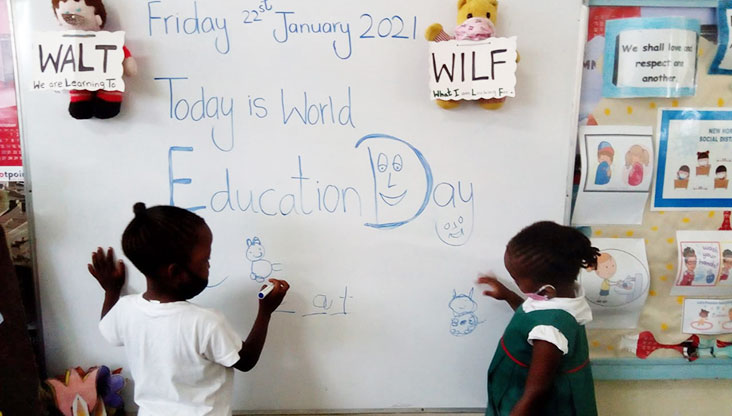 WALT
We are Learning To
WILF
What I am Looking For
Friday 22st January 2021
Today is World
Education Day
_ at
We shall love and
respect are
another.
NEW NOR
SOCIAL DISTA
otpoi